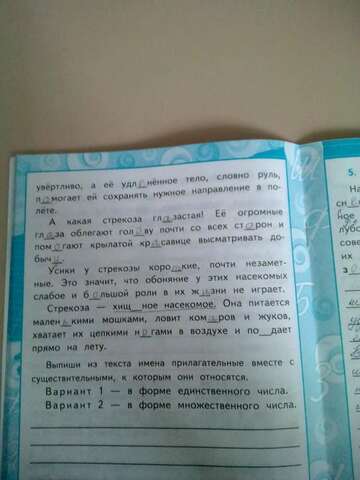 увёртливо, а её удлинённое тело, словно руль,
помогает ей сохранять нужное направление в по-
лёте.
А какая стрекоза глазастая! Её огромные
глаза облегают голову почти со всех сторон и
помогают крылатой красавице высматривать до-
бычу.
Усики у стрекозы короткие, почти незамет-
ные. Это значит, что обоняние у этих насекомых
слабое и большой роли в их жизни не играет.
Стрекоза — хищ__ное насекомое. Она питается
маленькими мошками, ловит комаров и жуков,
хватает их цепкими ногами в воздухе и по__дает
прямо на лету.
Выпиши из текста имена прилагательные вместе с
существительными, к которым они относятся.
Вариант 1 — в форме единственного числа.
Вариант 2 — в форме множественного числа.
5.
На